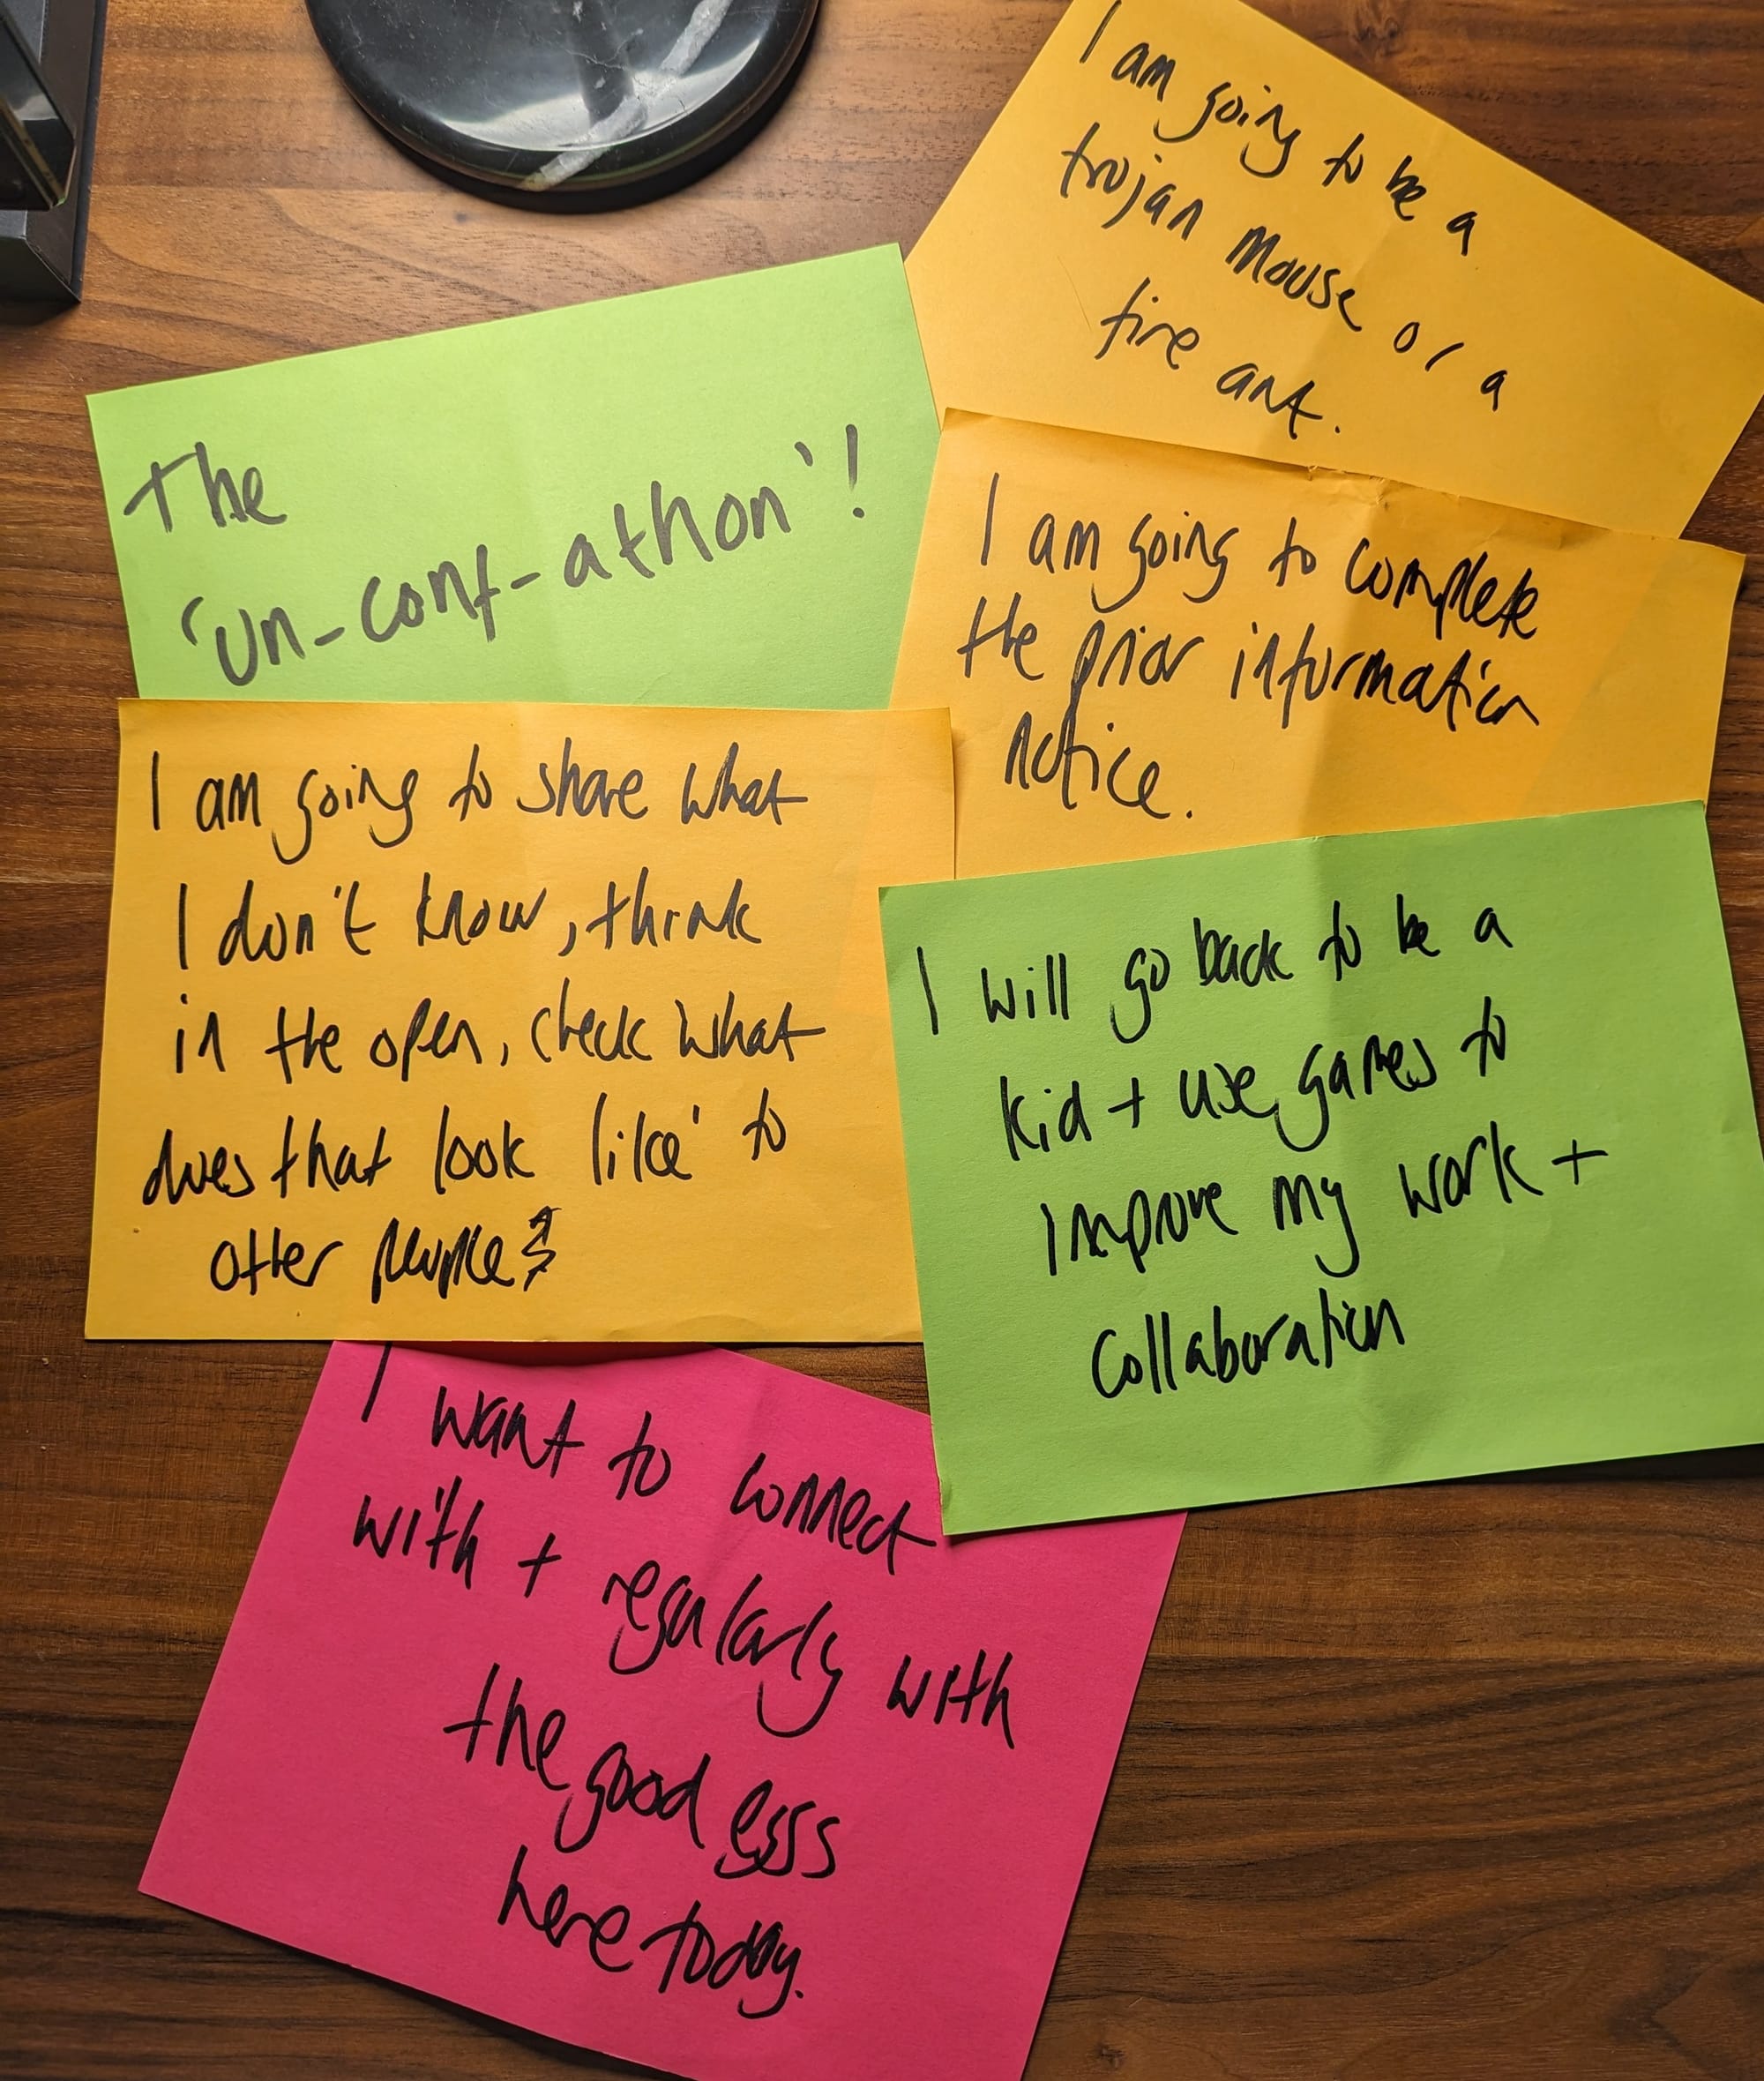 I am going to be a
trojan mouse or a
fire ant.
The
'un-conf-athon'!
I am going to complete
the prior information
notice.
I am going to share what
I don't know, think
in the open, check what
does that look like' to
other people?
I will go back to be a
kid + use games to
improve my work +
collaboration
I want to connect
with + regularly with
the good eggs
here today.